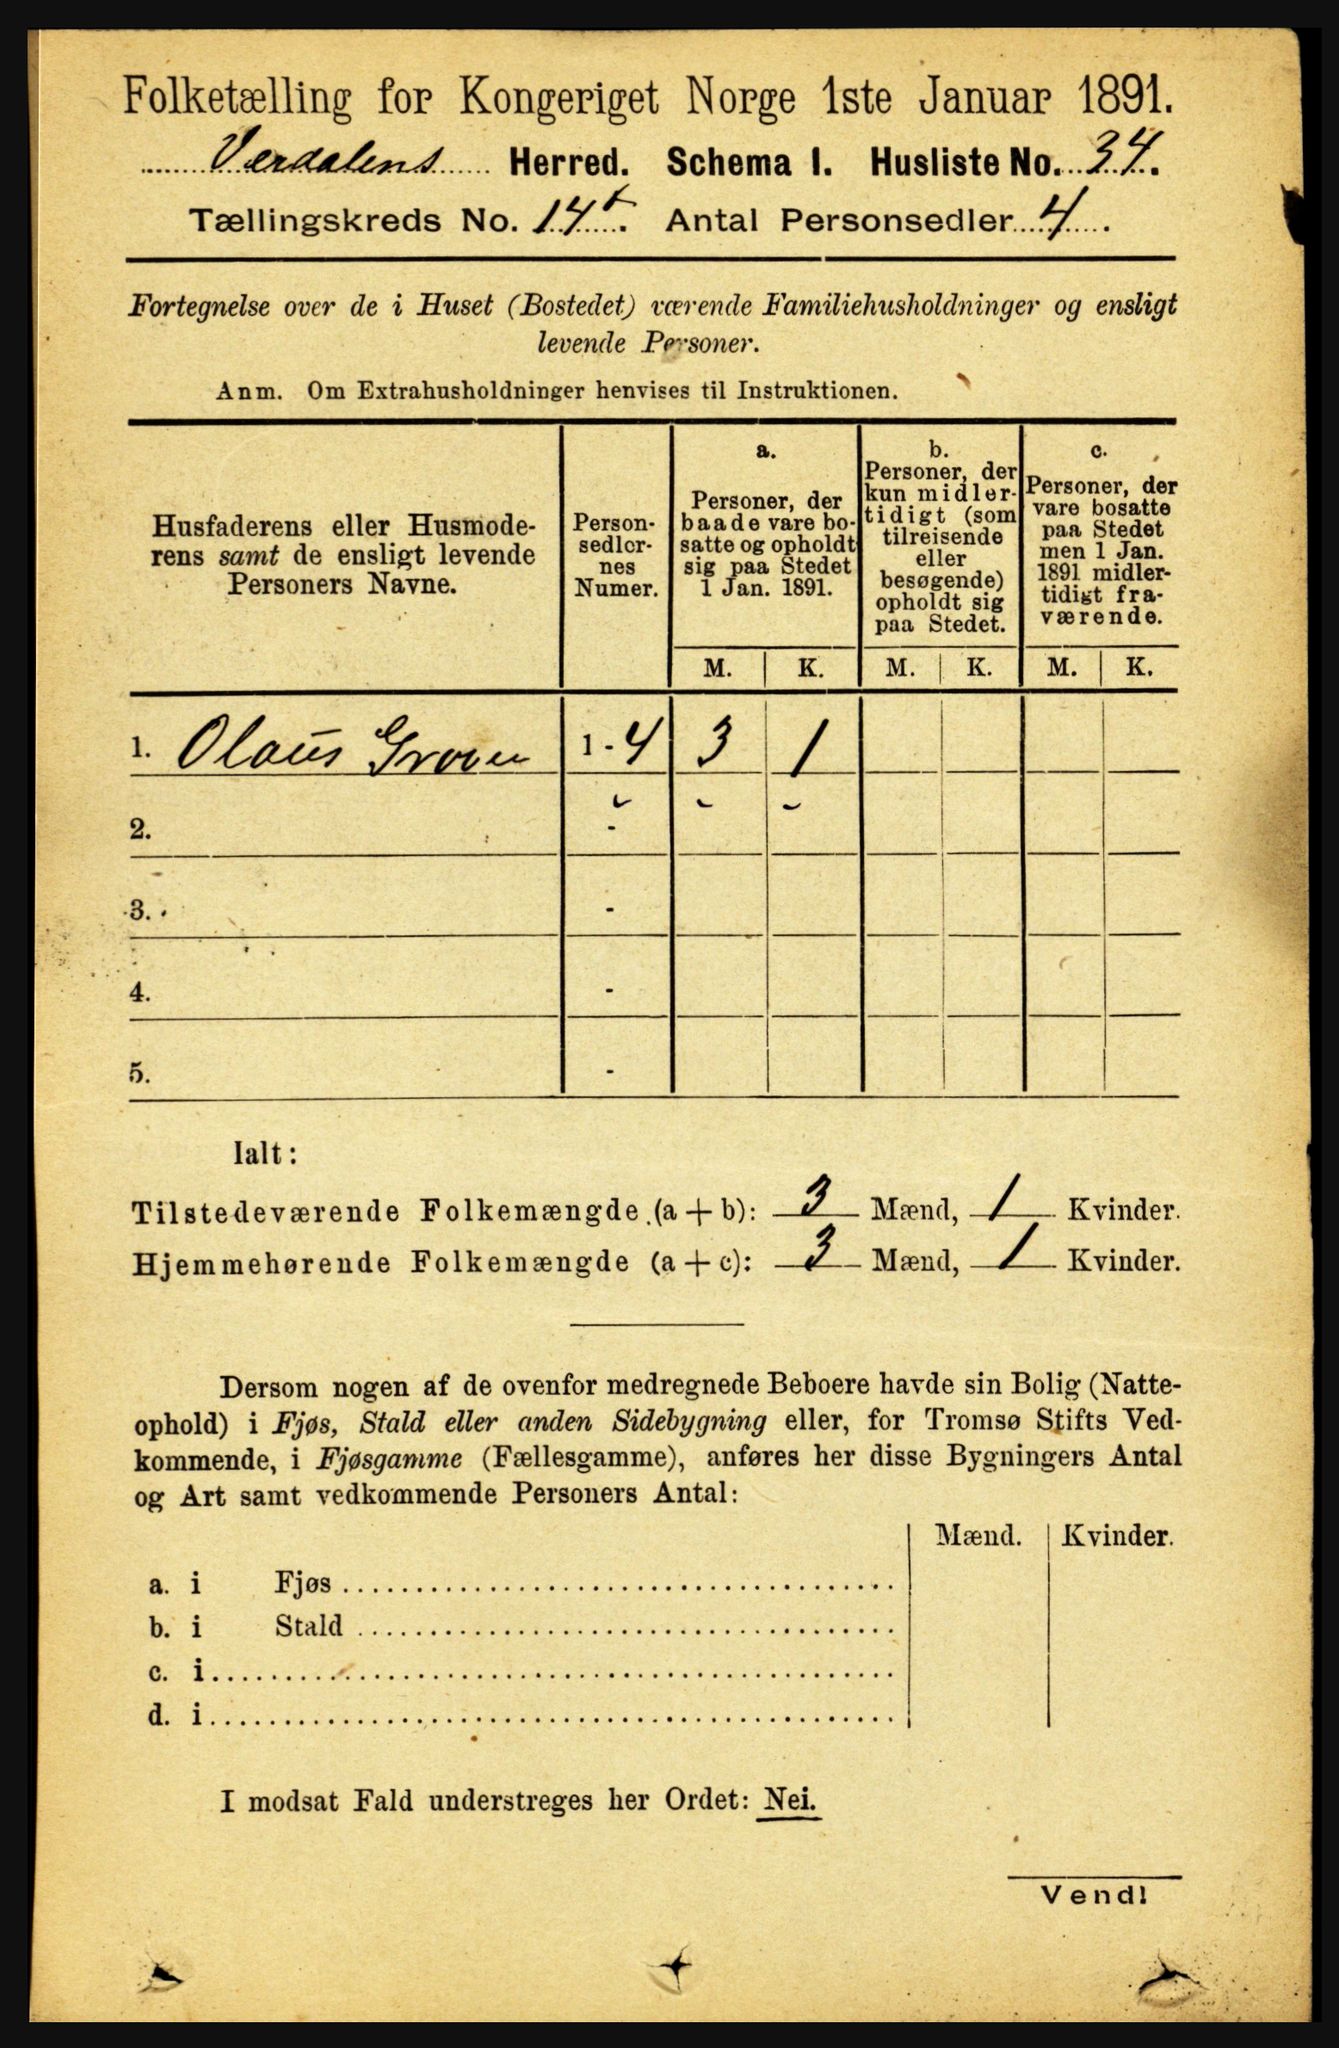 Folketælling for Kongeriget Norge 1ste Januar 1891.
Værdalens Herred. Schema I. Husliste No. 34.
Tællingskreds No. 14. Antal Personsedler 4.
Fortegnelse over de i Huset (Bostedet) værende Familiehusholdninger og ensligt
levende Personer.
Anm. Om Extrahusholdninger henvises til Instruktionen.
Husfaderens eller Husmode-
rens samt de ensligt levende
Personers Navne.
Person-
sedler-
nes
Numer.
a.
Personer, der
baade vare bo-
satte og opholdt
sig paa Stedet
1 Jan. 1891.
b.
Personer, der
kun midler-
tidigt (som
tilreisende
eller
besøgende)
opholdt sig
paa Stedet.
c.
Personer, der
vare bosatte
paa Stedet
men 1 Jan.
1891 midler-
tidigt fra-
værende.
M. K. M. K. M. K.
1. Olaus Groen 1 - 4 3 1
2. -
3. -
4. -
5. -
Ialt:
Tilstedeværende Folkemængde (a + b): 3 Mænd, 1 Kvinder.
Hjemmehørende Folkemængde (a + c): 3 Mænd, 1 Kvinder.
Dersom nogen af de ovenfor medregnede Beboere havde sin Bolig (Natte-
ophold) i Fjøs, Stald eller anden Sidebygning eller, for Tromsø Stifts Ved-
kommende, i Fjøsgamme (Fællesgamme), anføres her disse Bygningers Antal
og Art samt vedkommende Personers Antal:
Mænd. Kvinder.
a. i Fjøs
b. i Stald
c. i
d. i
I modsat Fald understreges her Ordet: Nei.
Vend!